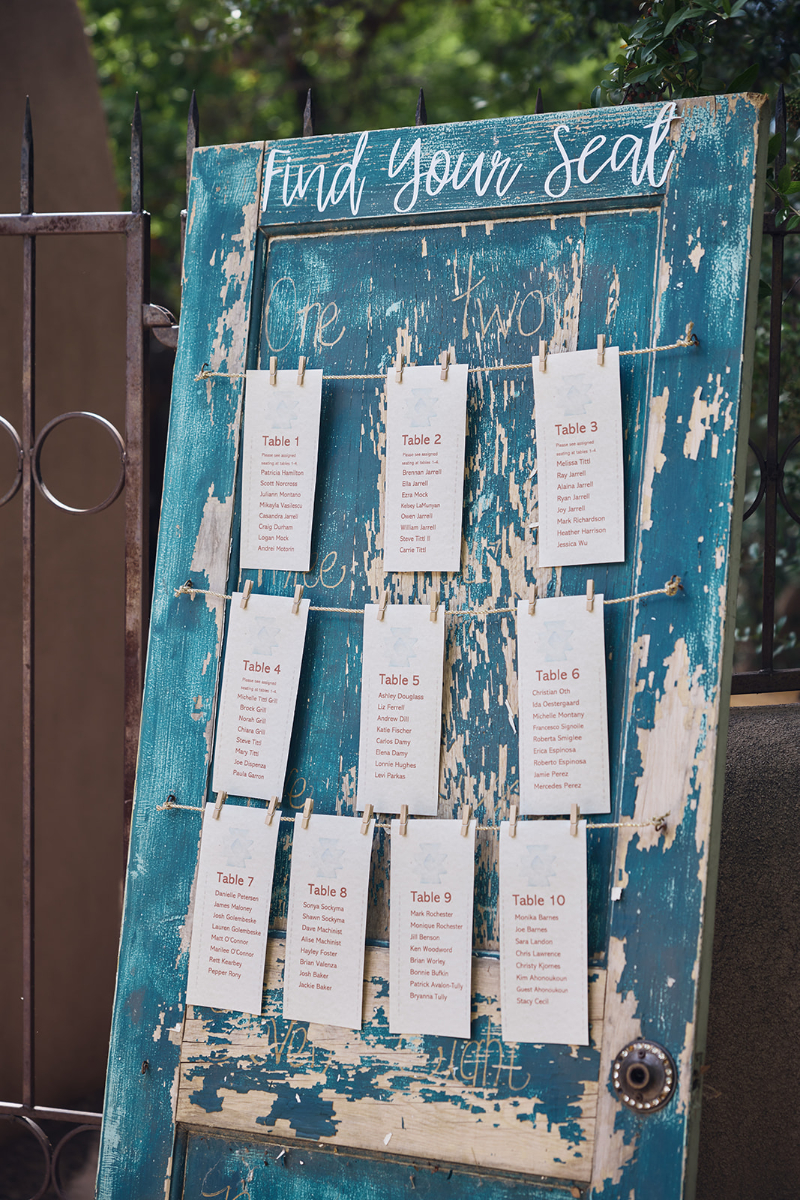 Find Your Seat
One two
Table 1
Please see assigned
seating at tables 1-4.
Patricia Hamilton
Scott Norcross
Juliann Montano
Mikayla Vasilescu
Casandra Jarrell
Craig Durham
Logan Mock
Andrei Motorin
Table 2
Please see assigned
seating at tables 1-4.
Brennan Jarrell
Ella Jarrell
Ezra Mock
Kelsey LaMunyan
Owen Jarrell
William Jarrell
Steve Tittl II
Carrie Tittl
Table 3
Please see assigned
seating at tables 1-4.
Melissa Tittl
Ray Jarrell
Alaina Jarrell
Ryan Jarrell
Joy Jarrell
Mark Richardson
Heather Harrison
Jessica Wu
Table 4
Please see assigned
seating at tables 1-4.
Michelle Tittl Grill
Brock Grill
Norah Grill
Chiara Grill
Steve Tittl
Mary Tittl
Joe Dispenza
Paula Garron
Table 5
Ashley Douglass
Liz Ferrell
Andrew Dill
Katie Fischer
Carlos Damy
Elena Damy
Lonnie Hughes
Levi Parkas
Table 6
Christian Oth
Ida Oestergaard
Michelle Montany
Francesco Signolie
Roberta Smiglee
Erica Espinosa
Roberto Espinosa
Jamie Perez
Mercedes Perez
Table 7
Danielle Petersen
James Maloney
Josh Golembeske
Lauren Golembeske
Matt O'Connor
Marilee O'Connor
Rett Kearbey
Pepper Rony
Table 8
Sunya Sockyma
Shawn Sockyma
Dave Machinist
Alise Machinist
Hayley Foster
Brian Valenza
Josh Baker
Jackie Baker
Table 9
Mark Rochester
Monique Rochester
Jill Benson
Ken Woodword
Brian Worley
Bonnie Bufkin
Patrick Avalon-Tully
Bryanna Tully
Table 10
Monika Barnes
Joe Barnes
Sara Landon
Chris Lawrence
Christy Kjornes
Kim Ahonoukoun
Guest Ahonoukoun
Stacy Cecil